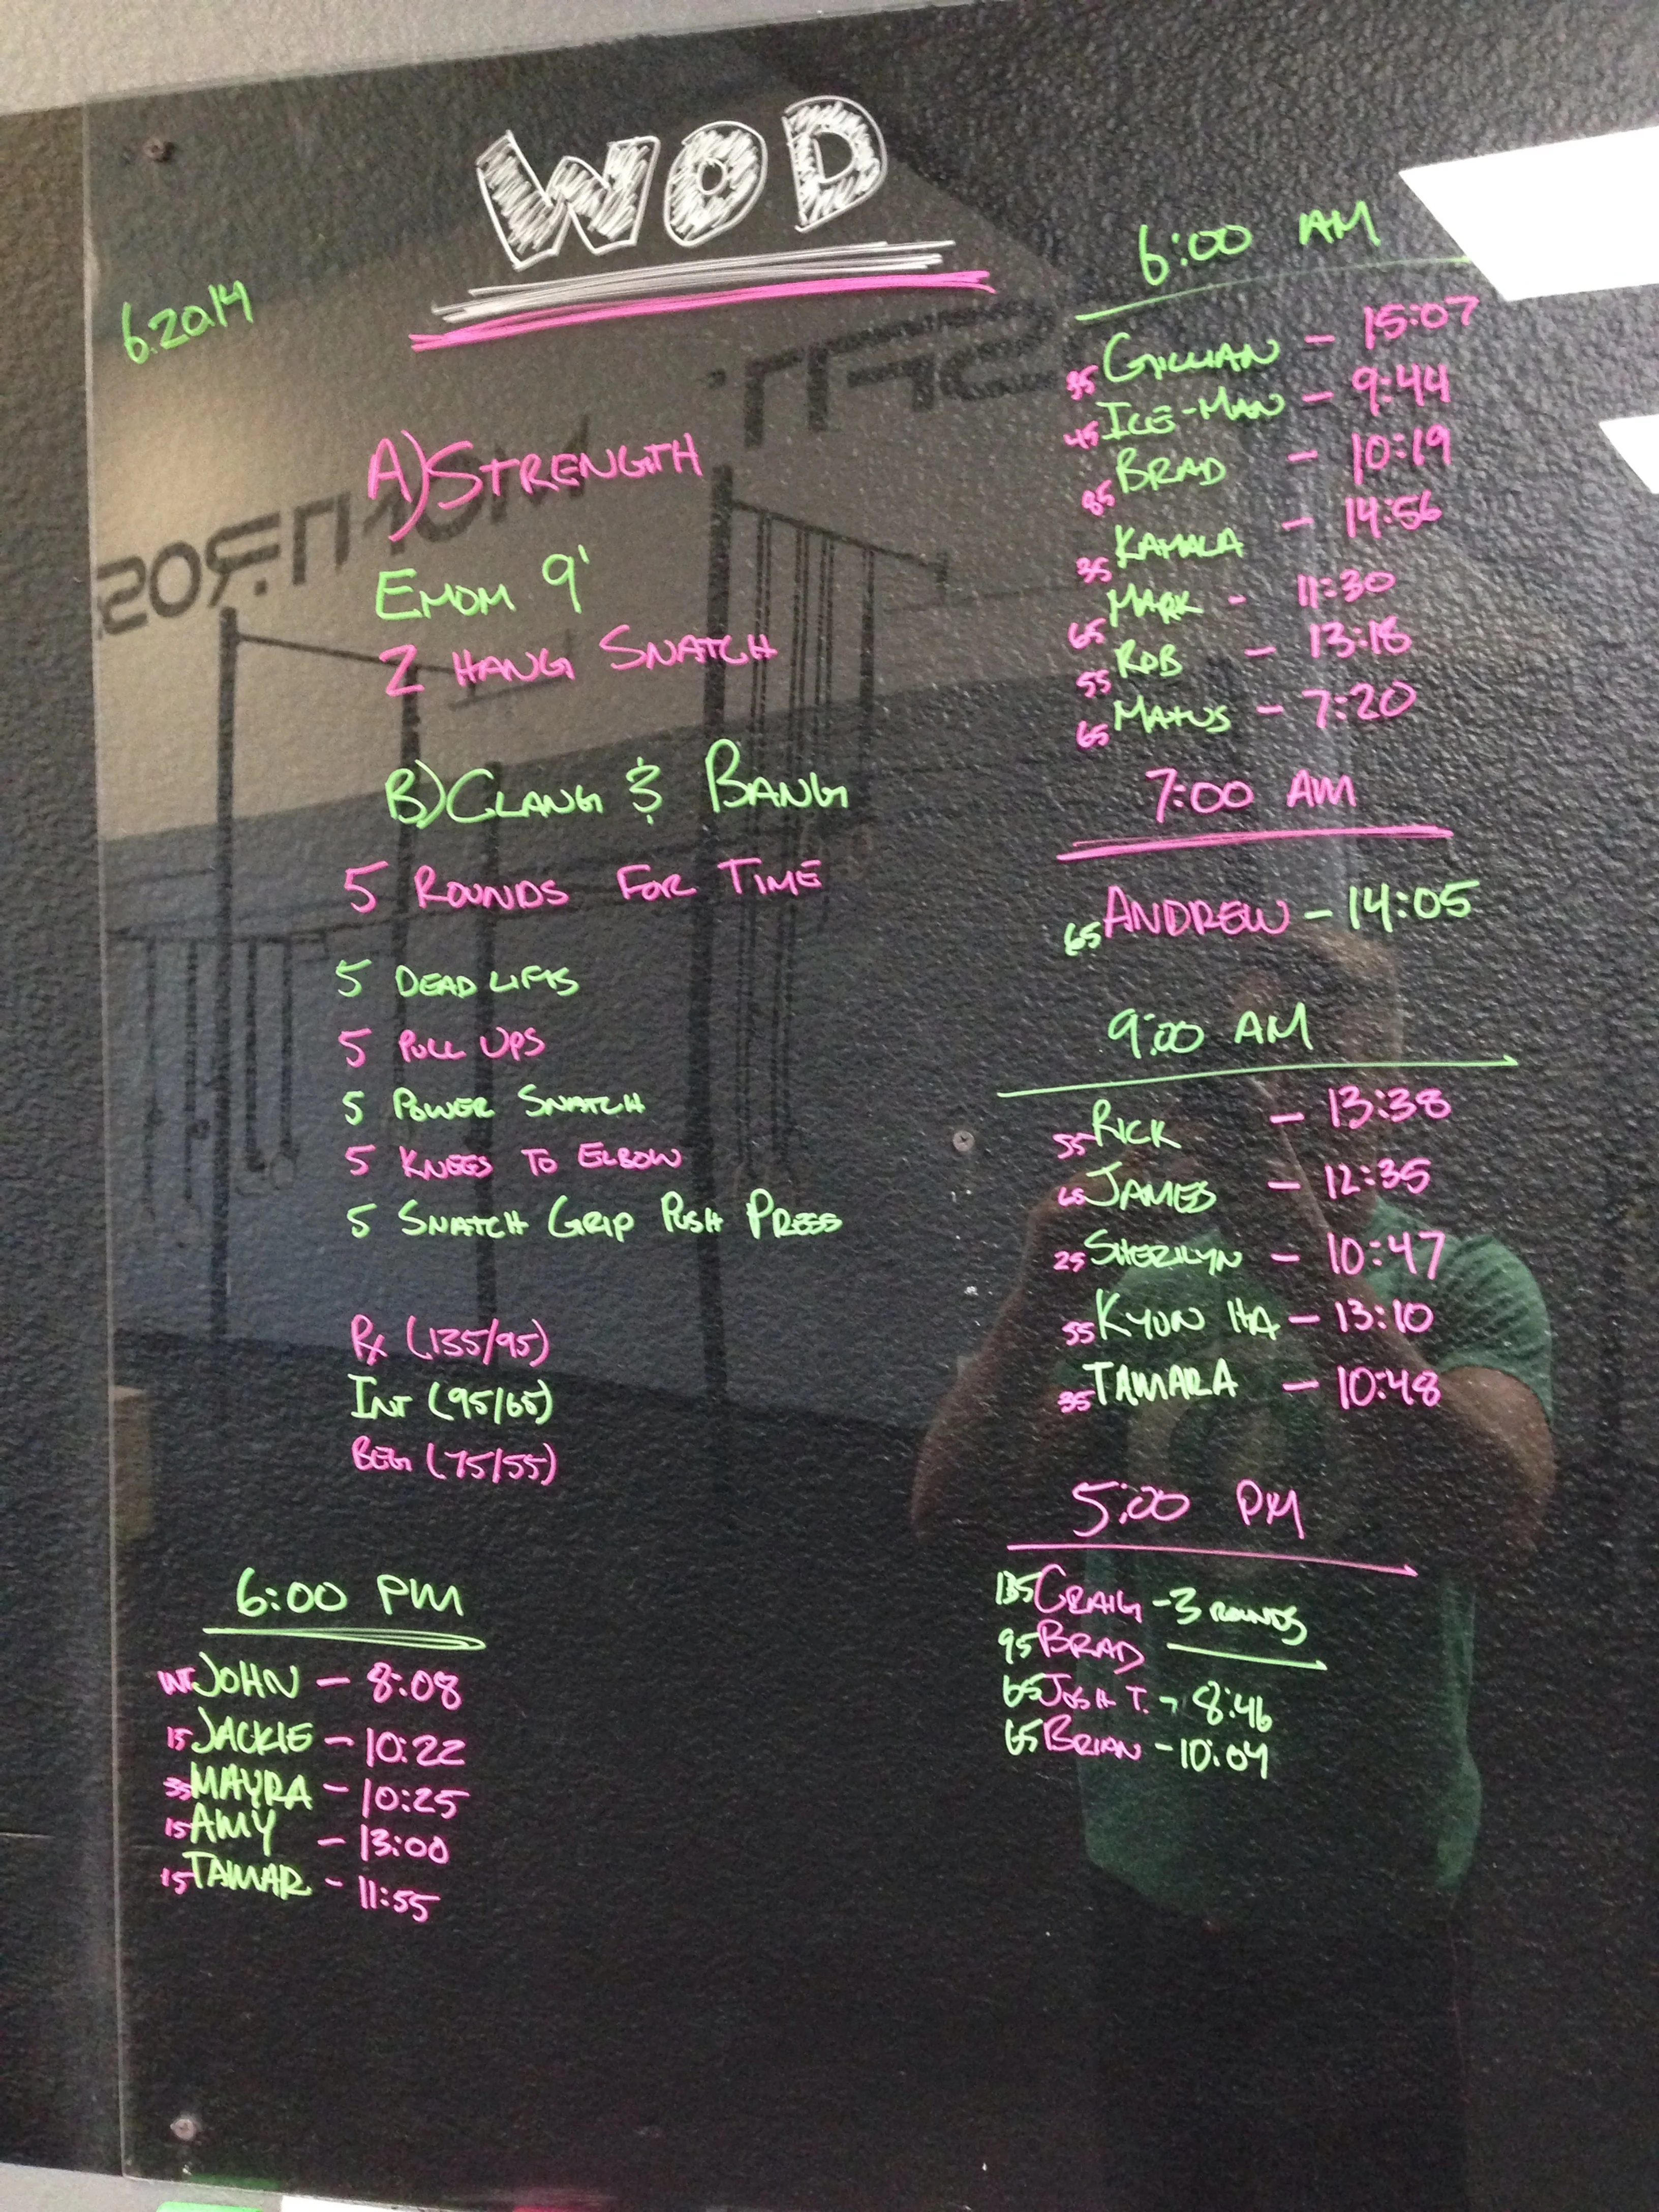 WOD
6.20.14
A) STRENGTH
EMOM 9'
2 HANG SNATCH
B) CLANG & BANG
5 ROUNDS FOR TIME
5 DEAD LIFTS
5 PULL UPS
5 POWER SNATCH
5 KNEES TO ELBOW
5 SNATCH GRIP PUSH PRESS
RX (135/95)
INT (95/65)
BEG (75/55)
6:00 PM
INT JOHN - 8:08
15 JACKIE - 10:22
35 MAYRA - 10:25
15 AMY - 13:00
15 TAMAR - 11:55
6:00 AM
35 GILLIAN - 15:07
45 ICE-MAN - 9:44
85 BRAD - 10:19
35 KAMALA - 14:56
65 MARK - 11:30
55 ROB - 13:18
65 MATUS - 7:20
7:00 AM
65 ANDREW - 14:05
9:00 AM
55 RICK - 13:38
65 JAMES - 12:35
25 SHERILYN - 10:47
55 KYUN HA - 13:10
35 TAMARA - 10:48
5:00 PM
135 CRAIG - 3 ROUNDS
95 BRAD
65 JOSH T. - 8:46
65 BRIAN - 10:04